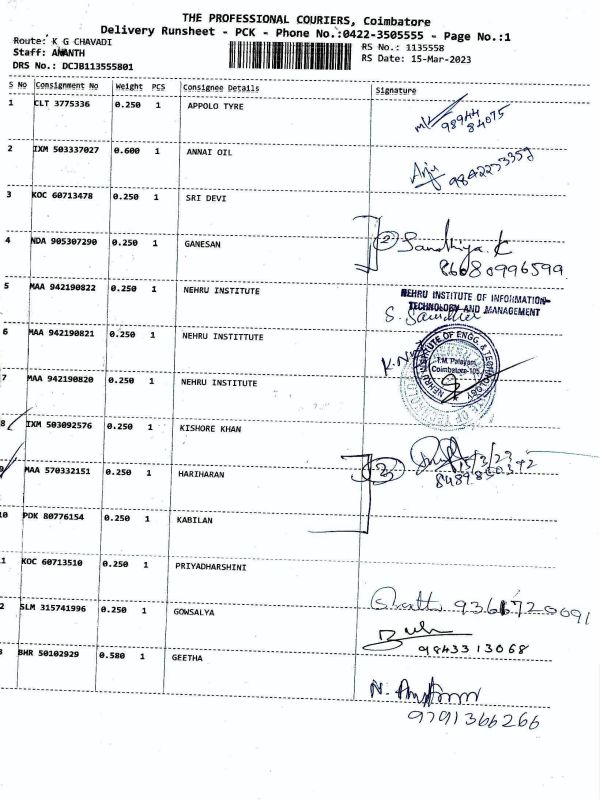 THE PROFESSIONAL COURIERS, Coimbatore
Delivery Runsheet - PCK - Phone No.:0422-3505555 - Page No.:1
Route: K G CHAVADI
Staff: ANANTH
DRS No.: DCJB113555801
RS No.: 1135558
RS Date: 15-Mar-2023
S No Consignment No Weight PCS Consignee Details Signature
1 CLT 3775336 0.250 1 APPOLO TYRE
98944
84075
2 IXM 503337027 0.600 1 ANNAI OIL
Anju 9842233352
3 KOC 60713478 0.250 1 SRI DEVI
4 NDA 905307290 0.250 1 GANESAN
2 Sandhiya.K
86080996599
5 MAA 942190822 0.250 1 NEHRU INSTITUTE
NEHRU INSTITUTE OF INFORMATION
TECHNOLOGY AND MANAGEMENT
6 MAA 942190821 0.250 1 NEHRU INSTITTUTE
NEHRU INSTITUTE OF ENGG. & TECHNOLOGY
T.M. Palayam,
Coimbatore-105
7 MAA 942190820 0.250 1 NEHRU INSTITUTE
8 IXM 503092576 0.250 1 KISHORE KHAN
9 MAA 570332151 0.250 1 HARIHARAN
2 15/3/23
10 PDK 80776154 0.250 1 KABILAN
1 KOC 60713510 0.250 1 PRIYADHARSHINI
2 SLM 315741996 0.250 1 GOWSALYA
9361720091
9843313068
3 BHR 50102929 0.580 1 GEETHA
9791366266